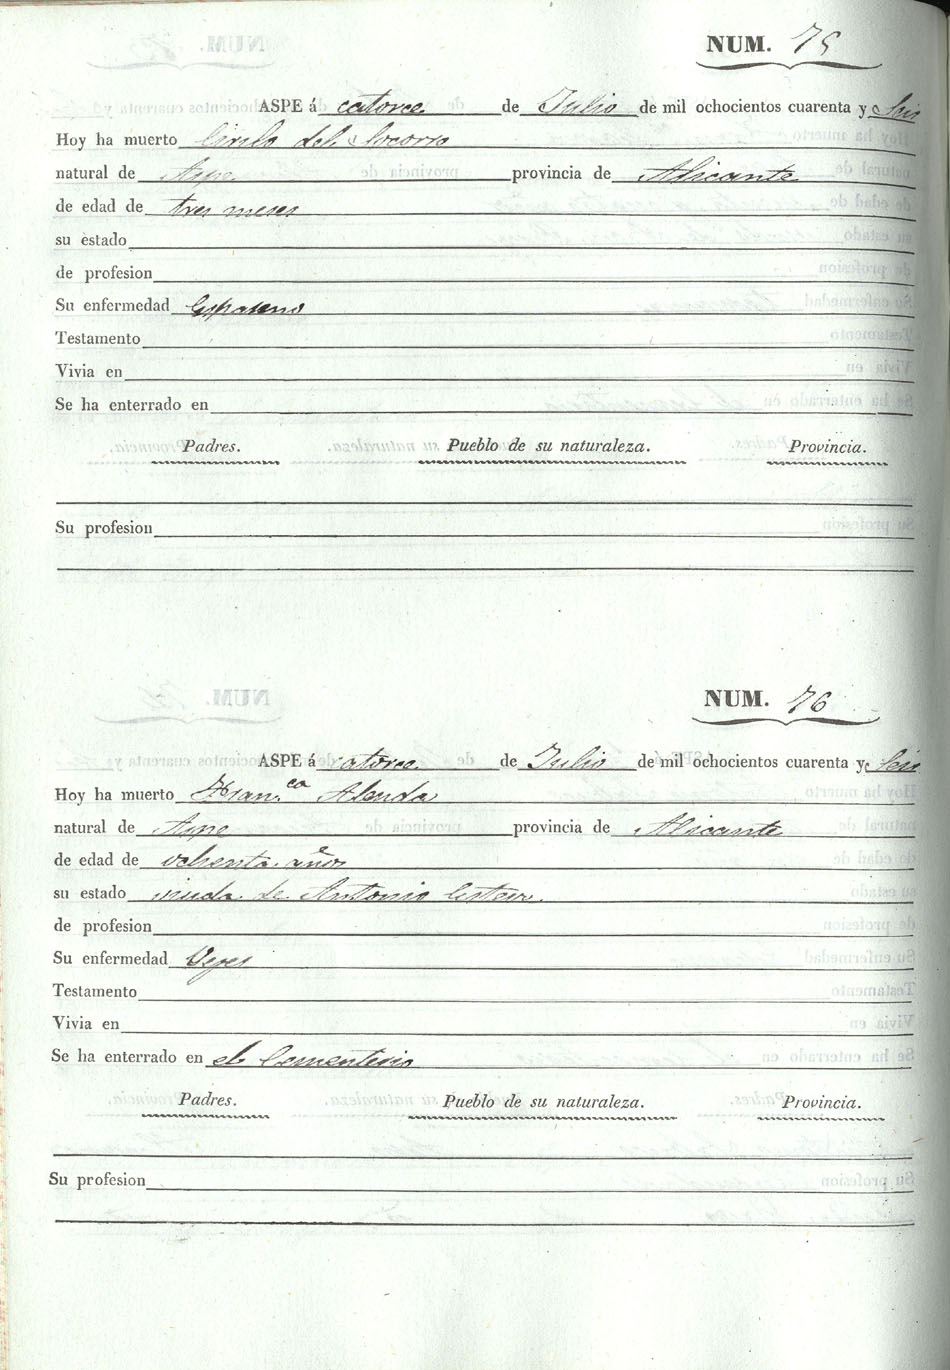 NUM. 75
ASPE á catorce de Julio de mil ochocientos cuarenta y seis
Hoy ha muerto Cirilo del Socorro
natural de Aspe provincia de Alicante
de edad de tres meses
su estado
de profesion
Su enfermedad
Testamento
Vivia en
Se ha enterrado en
Padres. Pueblo de su naturaleza. Provincia.
Su profesion
NUM. 76
ASPE á catorce de Julio de mil ochocientos cuarenta y seis
Hoy ha muerto Fran.ca Alenda
natural de Aspe provincia de Alicante
de edad de ochenta años
su estado viuda de Antonio
de profesion
Su enfermedad Vejes
Testamento
Vivia en
Se ha enterrado en el Cementerio
Padres. Pueblo de su naturaleza. Provincia.
Su profesion